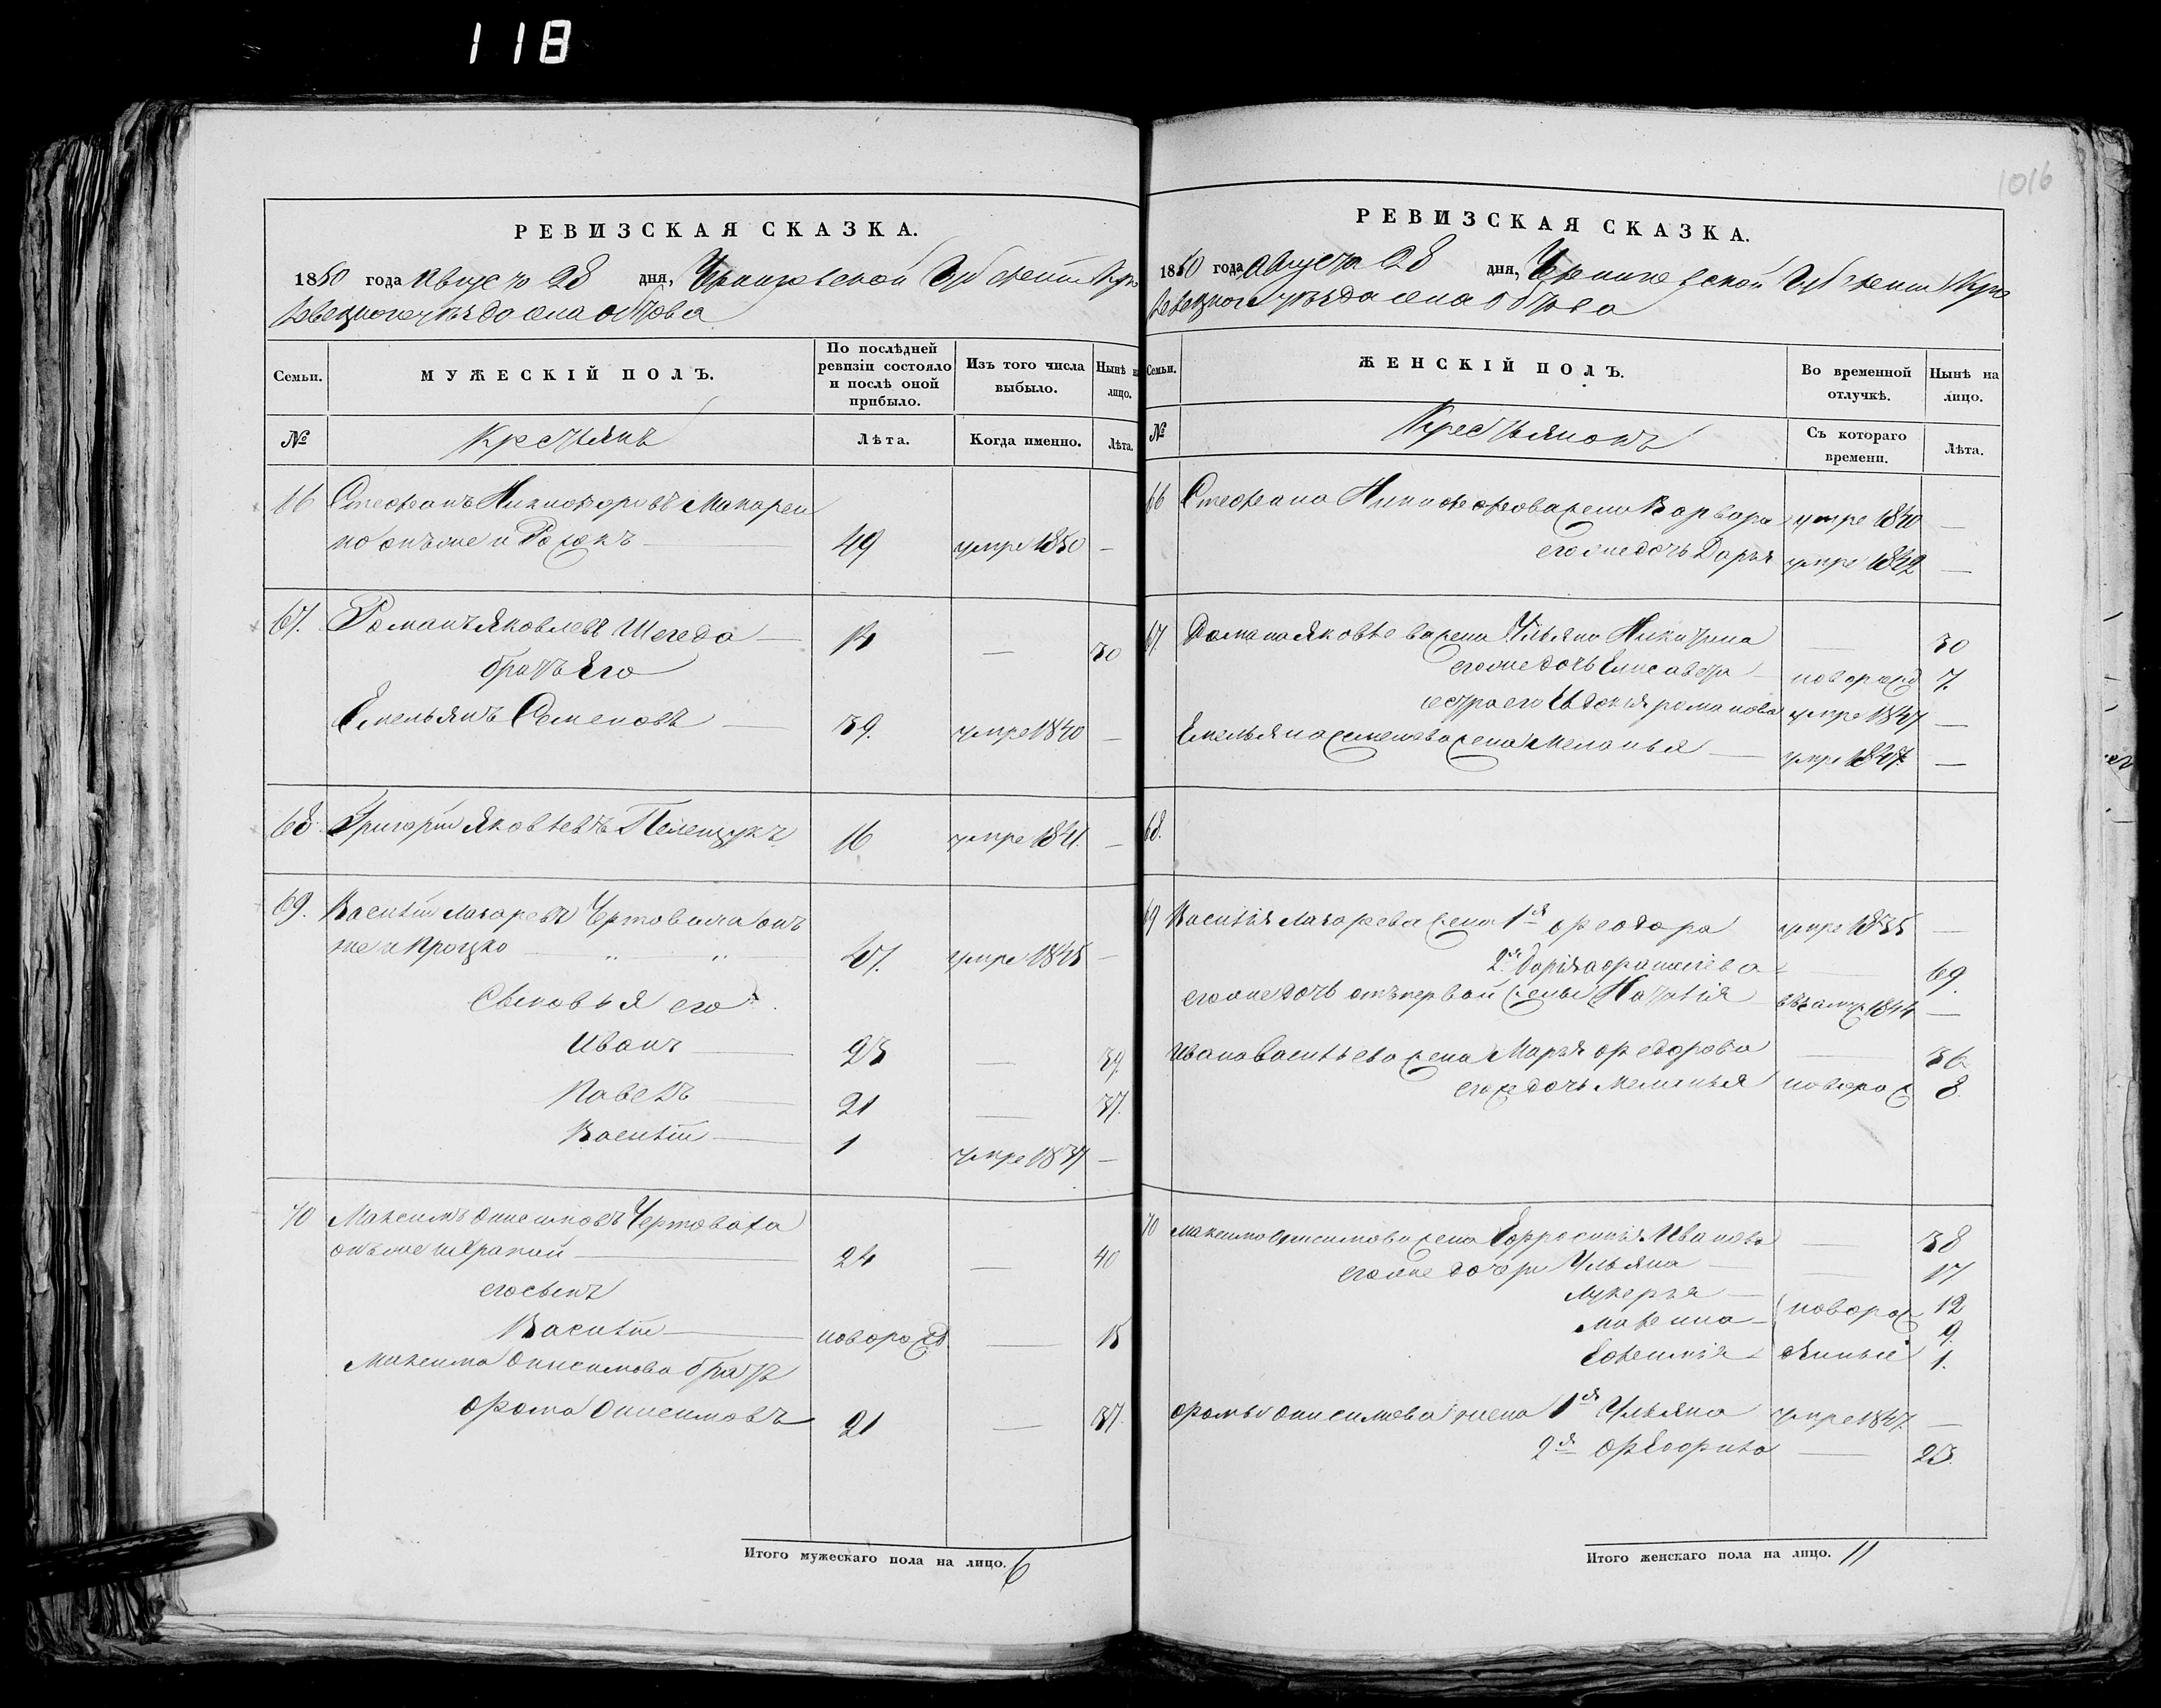 118
1016
РЕВИЗСКАЯ СКАЗКА.
1850 года Августа 28 дня, Черниговской Губерніи Кро
левецкого уѣзда села
Семьи.
МУЖЕСКІЙ ПОЛЪ.
По послѣдней ревизіи состояло и послѣ оной прибыло.
Изъ того числа выбыло.
Нынѣ на лицо.
№
Крестьянъ
Лѣта.
Когда именно.
Лѣта.
66 Стефанъ Никифоровъ Макарен
ко онъ же и 49 умре 1850 —
67. Романъ Яковлевъ Шегеда — 14 — 30
братъ Его
Емельянъ Семеновъ — 39. умре 1840 —
68. Григорій Яковлевъ Пелещукъ 16 умре 1841. —
69. Василій Лазаревъ Чертовила онъ
же и Процко — „ — „ — 47. умре 1845 —
Сыновья его
Иванъ — 23 — 39.
Павелъ — 21 — 37.
Василій — 1 умре 1837 —
70 Максимъ Онисимовъ Чертовала
онъ же и Храпай — 24 — 40
его сынъ
Василій — новорожд — 15
Максима Онисимова братъ
Фома Онисимовъ 21 — 37.
Итого мужескаго пола на лицо. 6
РЕВИЗСКАЯ СКАЗКА.
1850 года Августа 28 дня, Черниговской Губерніи Кро
левецкого уѣзда села
Семьи.
ЖЕНСКІЙ ПОЛЪ.
Во временной отлучкѣ.
Нынѣ на лицо.
№
Крестьянокъ
Съ котораго времени.
Лѣта.
66 Стефана Никифорова жена Варвара умре 1840 —
его же дочь Дарья умре 1842 —
67 Романа Яковлева жена Ульяна Никитина — 30
его же дочь Елисавета — новорожд 7.
сестра его Евдокія романова умре 1847 —
Емельяна семенова жена Меланья — умре 1847. —
68.
69 Василія Лазарева жена 1я Феодора умре 1835 —
2я Дарія — 69.
его же дочь отъ первой жены Наталія въ замуж 1844 —
Ивана Васильева жена Марья Федорова — 36
его же дочь Меланья новорож 8.
70 Максима Онисимова жена Ефросинія Иванова — 38
его же дочери Ульяна — — 17
Лукерья — 12
новорож
9.
Евфимія — 1.
Фомы Онисимова жена 1я Ульяна умре 1847. —
2я — 23.
Итого женскаго пола на лицо. 11